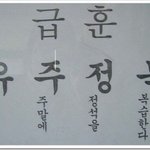 급훈
우주정
주말에
정석을
복습한다